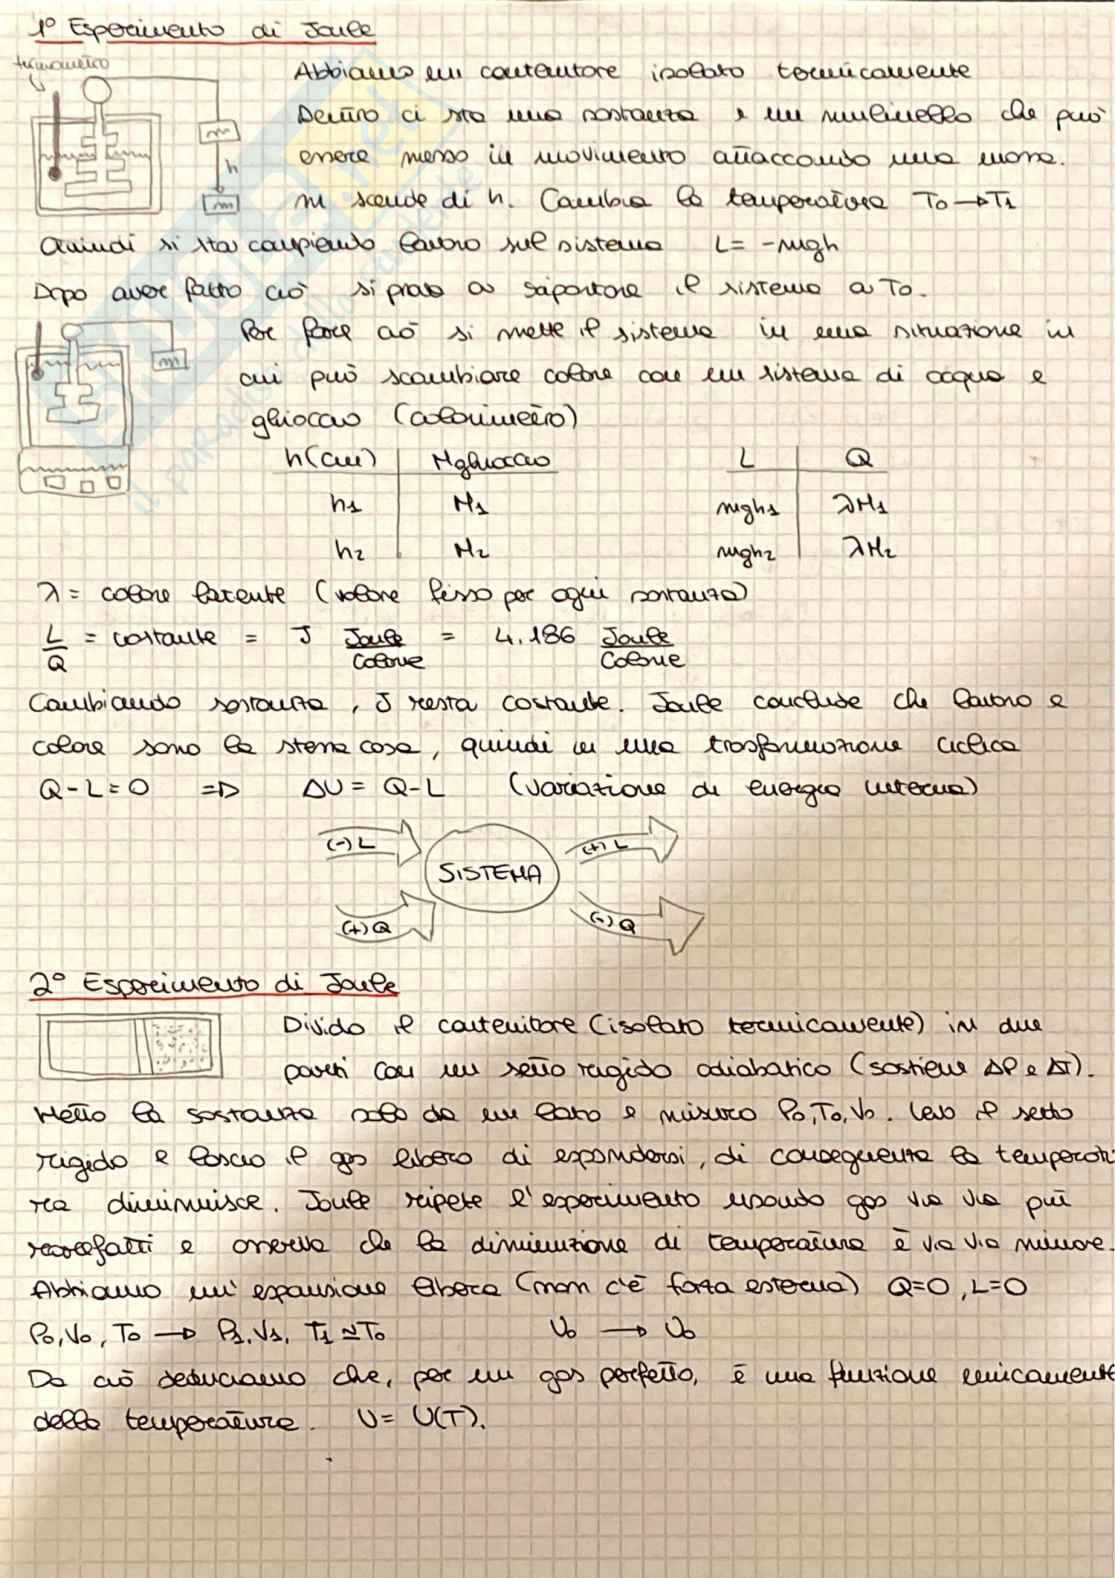 1° Esperimento di Joule
termometro
Abbiamo un contenitore isolato termicamente
Dentro ci sta una sostanza e un mulinello che può
essere messo in movimento attaccando una massa.
m
h
m
m scende di h. Cambia la temperatura T₀→T₁
Quindi si sta compiendo lavoro sul sistema L= -mgh
Dopo aver fatto ciò si prova a riportare il sistema a T₀.
Per fare ciò si mette il sistema in una situazione in
m
cui può scambiare calore con un sistema di acqua e
ghiaccio (calorimetro)
h(cm) Mghiaccio L Q
h₁ M₁ mgh₁ λM₁
h₂ M₂ mgh₂ λM₂
λ = calore latente (valore fisso per ogni sostanza)
L/Q = costante = J Joule/Calorie = 4.186 Joule/Calorie
Cambiando sostanza, J resta costante. Joule conclude che lavoro e
calore sono la stessa cosa, quindi in una trasformazione ciclica
Q-L=0 => ΔU= Q-L (variazione di energia interna)
(-) L (+) L
SISTEMA
(+) Q (-) Q
2° Esperimento di Joule
Divido il contenitore (isolato termicamente) in due
parti con un setto rigido adiabatico (sostiene ΔP e ΔT).
Metto la sostanza solo da un lato e misuro P₀,T₀,V₀. Levo il setto
rigido e lascio il gas libero di espandersi, di conseguenza la temperatu
ra diminuisce. Joule ripete l'esperimento usando gas via via più
rarefatti e osserva che la diminuzione di temperatura è via via minore.
Abbiamo un'espansione libera (non c'è forza esterna) Q=0, L=0
P₀,V₀,T₀ → P₁,V₁, T₁≃T₀ U₀ → U₀
Da ciò deduciamo che, per un gas perfetto, è una funzione unicamente
della temperatura. U= U(T).